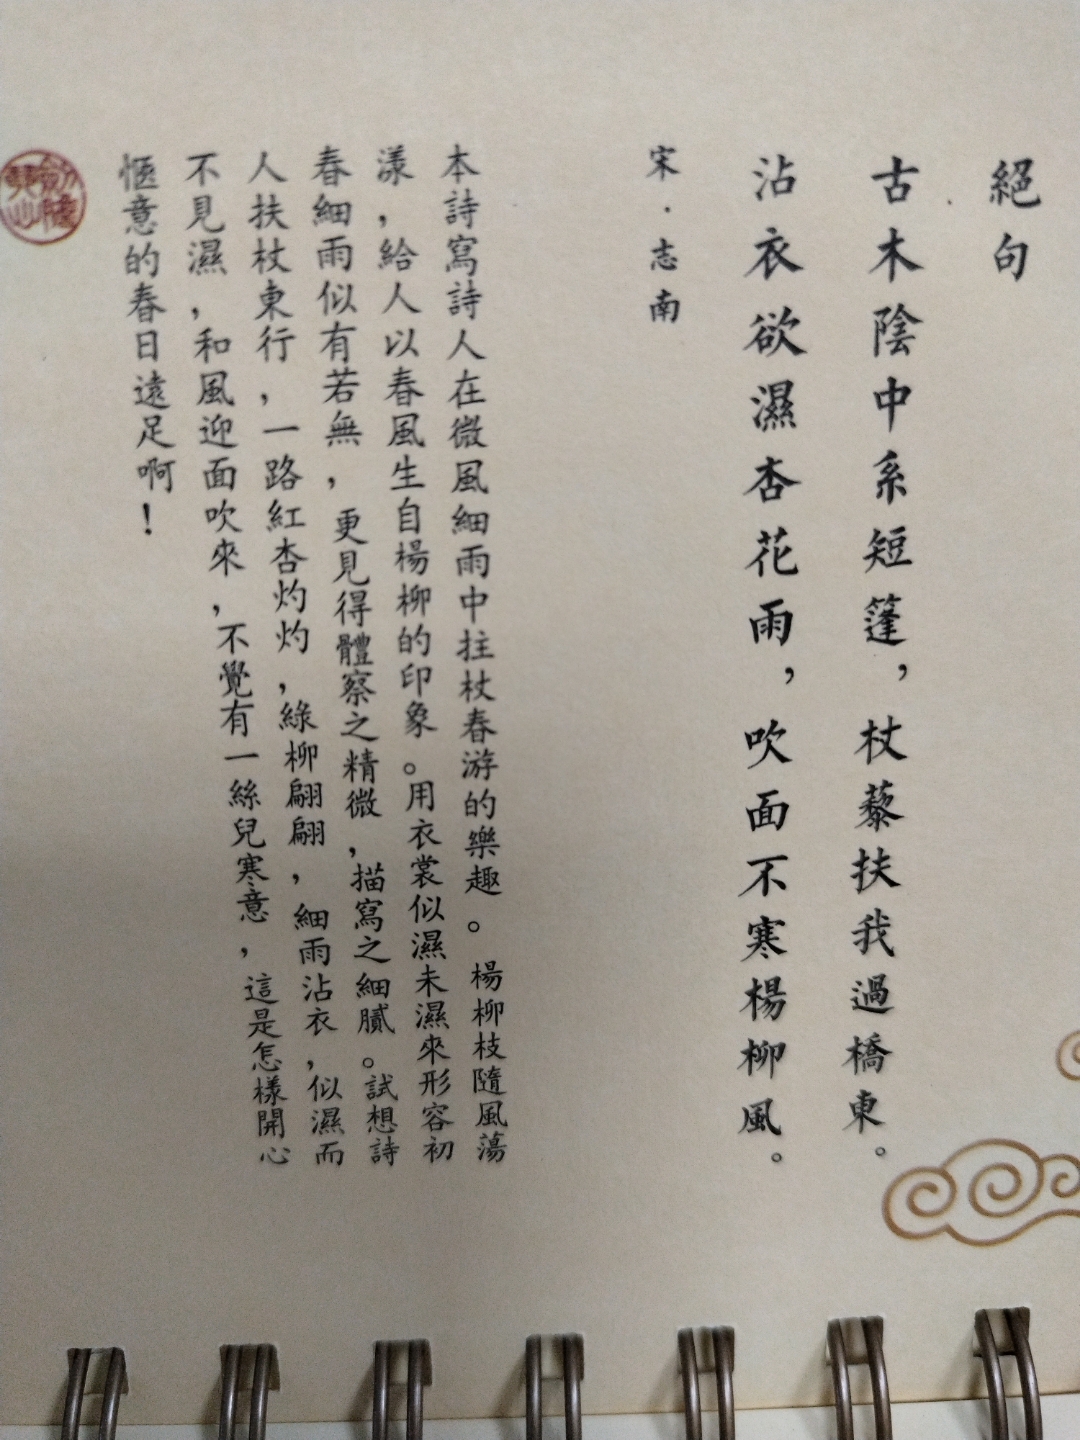 絕句
古木陰中系短篷，杖藜扶我過橋東。
沾衣欲濕杏花雨，吹面不寒楊柳風。
宋·志南
本詩寫詩人在微風細雨中拄杖春游的樂趣。楊柳枝隨風蕩
漾，給人以春風生自楊柳的印象。用衣裳似濕未濕來形容初
春細雨似有若無，更見得體察之精微，描寫之細膩。試想詩
人扶杖東行，一路紅杏灼灼，綠柳翩翩，細雨沾衣，似濕而
不見濕，和風迎面吹來，不覺有一絲兒寒意，這是怎樣開心
愜意的春日遠足啊！